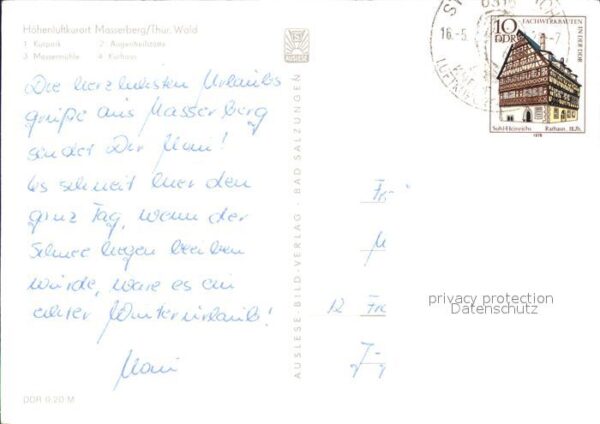 Höhenluftkurort Masserberg/Thür. Wald
1 Kurpark 2 Augenheilstätte
3 Massermühle 4 Kurhaus
Die herzlichsten Urlaubs
grüße aus Masserberg
sendet Dir Mani!
Es schneit hier den
ganz Tag, wenn der
Schnee liegen bleiben
würde, wäre es ein
echter Winterurlaub!
Mani
DDR 0,20 M
AUSLESE-BILD-VERLAG · BAD SALZUNGEN
16.-5.
10
DDR
FACHWERKBAUTEN
IN DER DDR
Suhl-Heinrichs Rathaus 16. Jh.
1978
Fr
M
12 Fr
privacy protection
Datenschutz